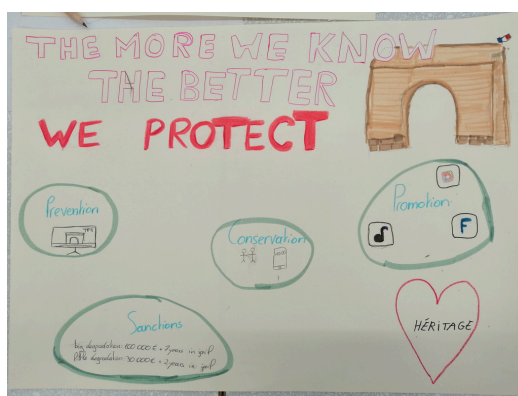 THE MORE WE KNOW
THE BETTER
WE PROTECT
Prevention
Conservation
Promotion
F
Sanctions
big degradation: 100 000 € + 7 years in jail
little degradation 30 000 € + 2 years in jail
HÉRITAGE